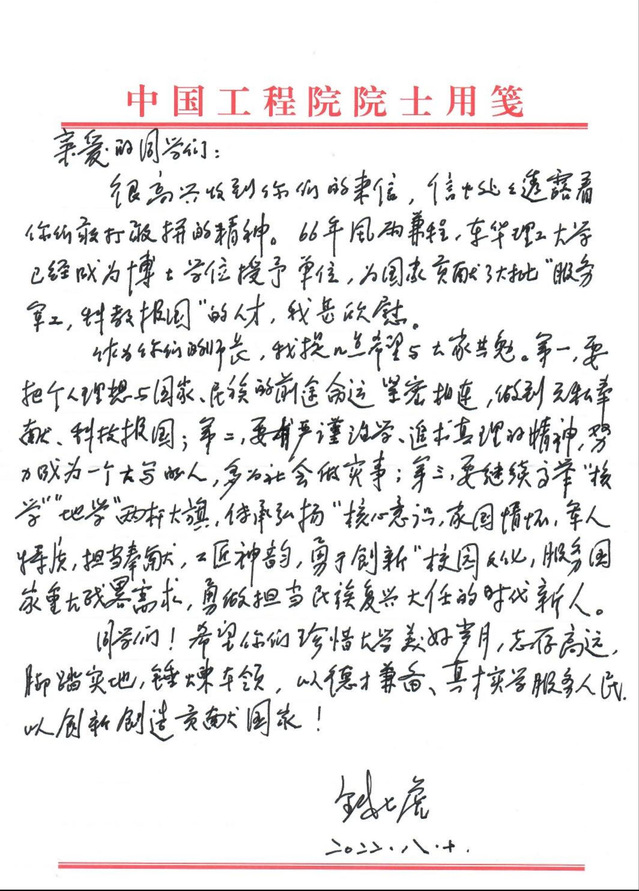 中国工程院院士用笺
亲爱的同学们：
很高兴收到你们的来信，信中处处透露着
你们敢打敢拼的精神。66年风雨兼程，东华理工大学
已经成为博士学位授予单位，为国家贡献了大批“服务
军工，科教报国”的人才，我甚欣慰。
作为你们的师长，我提几点希望与大家共勉。第一，要
把个人理想与国家、民族的前途命运紧密相连，做到无私奉
献、科技报国；第二，要有严谨治学、追求真理的精神，努
力成为一个大写的人，多为社会做实事；第三，要继续高举“核
学”“地学”两杆大旗，传承弘扬“核心意识，家国情怀，军人
特质，担当奉献，工匠神韵，勇于创新”校园文化，服务国
家重大战略需求，勇做担当民族复兴大任的时代新人。
同学们！希望你们珍惜大学美好岁月，志存高远，
脚踏实地，锤炼本领，以德才兼备、真才实学服务人民，
以创新创造贡献国家！
钱七虎
2022.八.十.